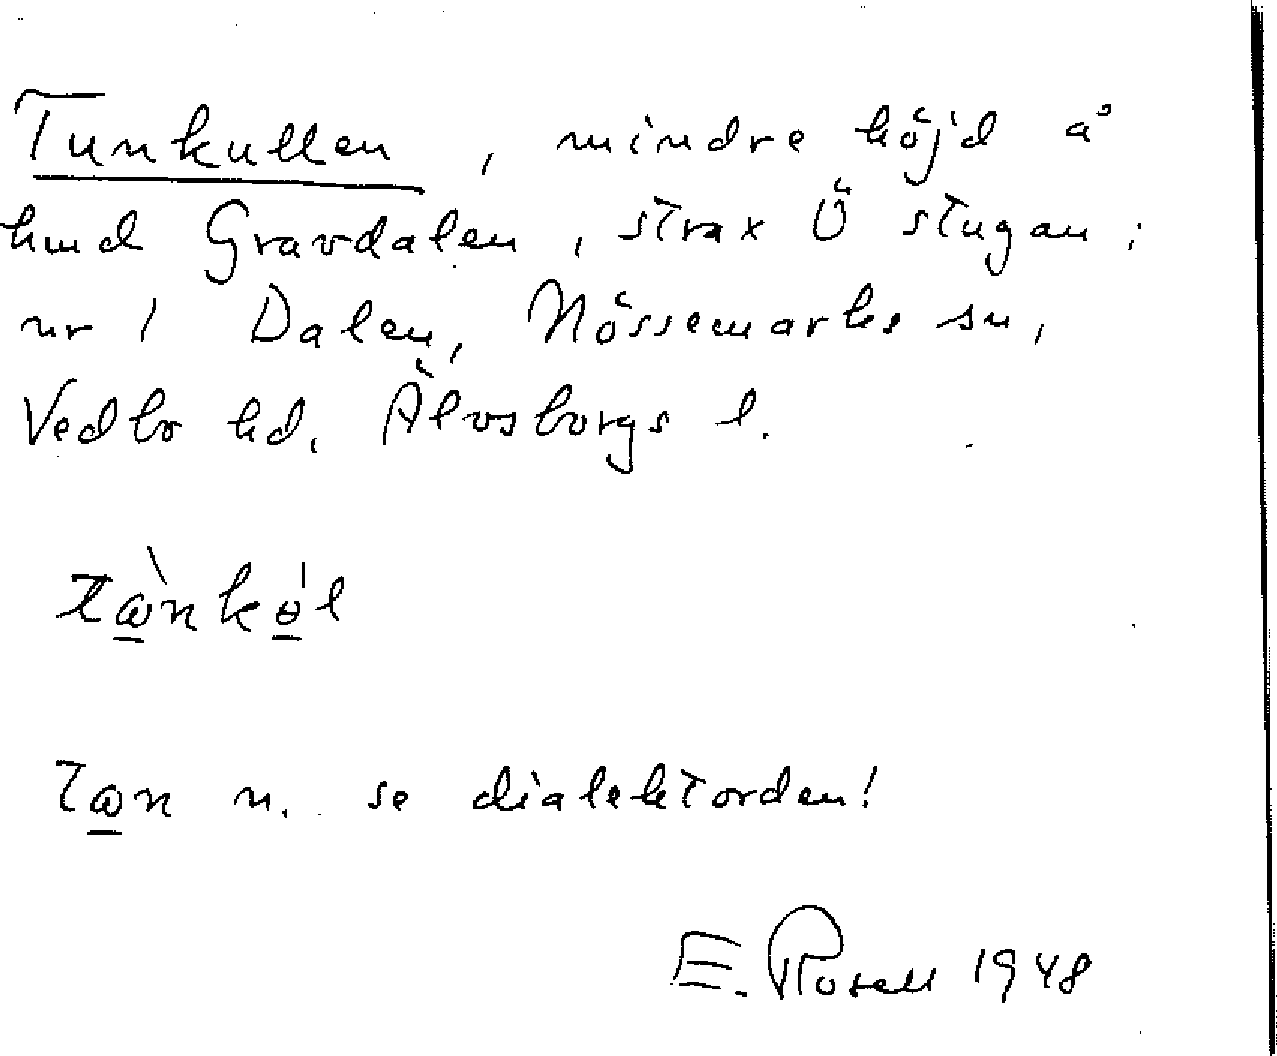 Tunkullen, mindre höjd å
hmd Gravdalen, strax Ö stugan;
nr 1 Dalen, Nössemarks sn,
Vedbo hd. Älvsborgs l.
n. se dialektorden!
E. Rosell 1948